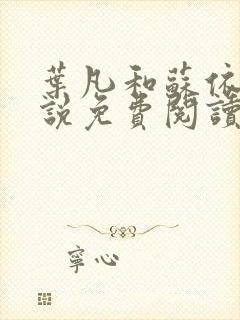 葉凡和蘇依
說免費閱讀
寧心